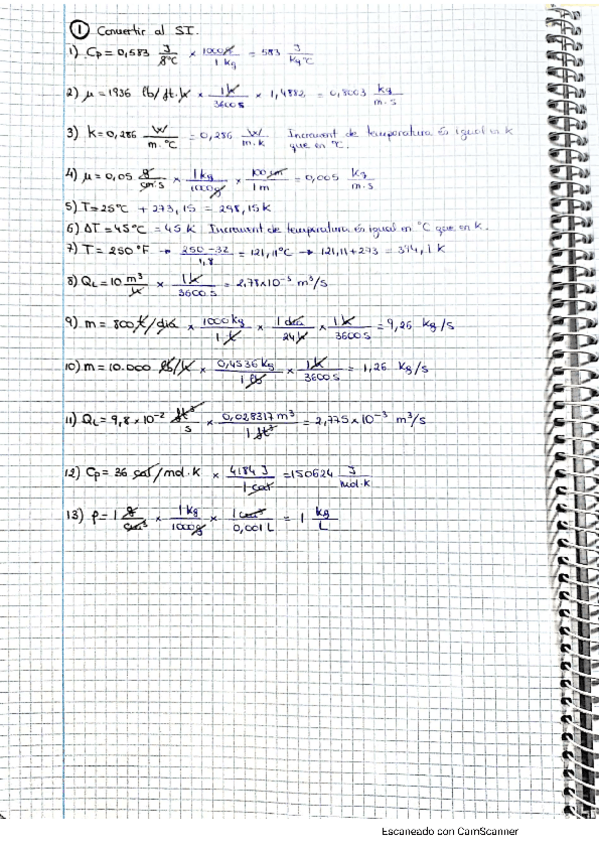 ① Convertir al SI.
1) Cp = 0,583 J/g°C × 1000g/1 kg = 583 J/kg°C
2) μ = 1936 lb/ft.h × 1h/3600s × 1,4882 = 0,8003 kg/m.s
3) K = 0,286 W/m.°C = 0,286 W/m.K Increment de temperatura és igual en K
que en °C.
4) μ = 0,05 g/cm.s × 1kg/1000g × 100cm/1m = 0,005 kg/m.s
5) T = 25°C + 273,15 = 298,15K
6) ΔT = 45°C = 45K Increment de temperatura és igual en °C que en K.
7) T = 250°F → 250-32/1,8 = 121,11°C → 121,11+273 = 394,1 K
8) QL = 10 m³/h × 1h/3600s = 2,78×10⁻³ m³/s
9) m = 800 t/dia × 1000kg/1t × 1 dia/24h × 1h/3600s = 9,26 kg/s
10) m = 10.000 lb/h × 0,4536 kg/1 lb × 1h/3600s = 1,26 kg/s
11) QL = 9,8×10⁻² ft³/s × 0,028317 m³/1 ft³ = 2,775×10⁻³ m³/s
12) Cp = 36 cal/mol.K × 4184 J/1 cal = 150624 J/mol.K
13) ρ = 1 g/cm³ × 1 kg/1000g × 1 cm³/0,001 L = 1 kg/L
Escaneado con CamScanner